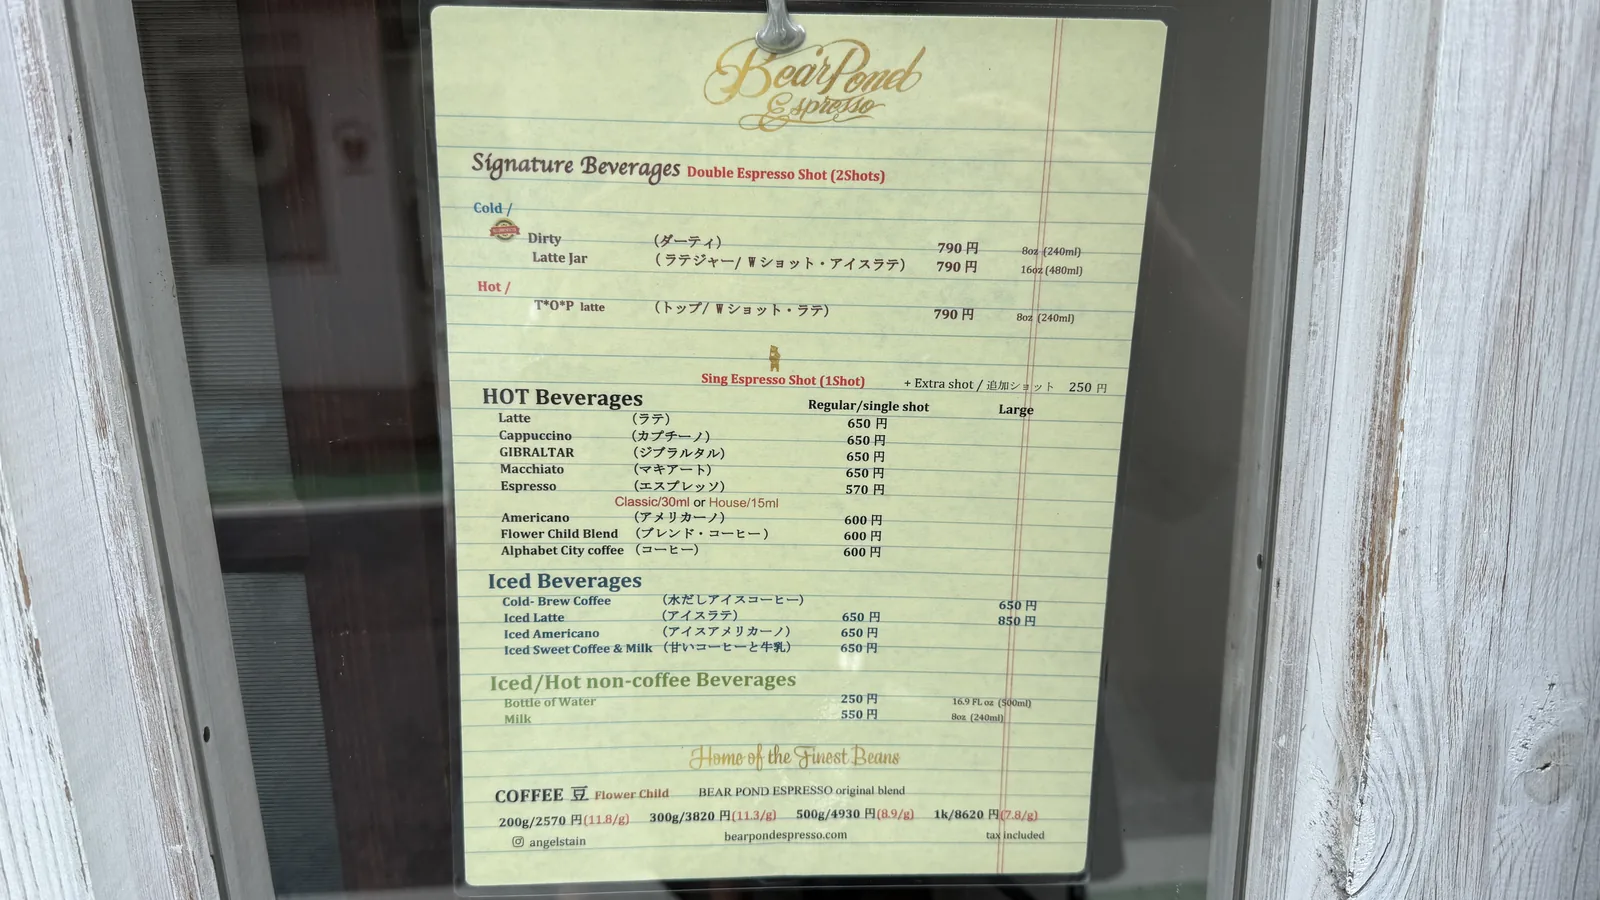 Bear Pond
Espresso
Signature Beverages Double Espresso Shot (2Shots)
Cold /
Dirty (ダーティ) 790 円 8oz (240ml)
Latte Jar (ラテジャー/ Wショット・アイスラテ) 790 円 16oz (480ml)
Hot /
T*O*P latte (トップ/ Wショット・ラテ) 790 円 8oz (240ml)
Sing Espresso Shot (1Shot) + Extra shot / 追加ショット 250 円
HOT Beverages Regular/single shot Large
Latte (ラテ) 650 円
Cappuccino (カプチーノ) 650 円
GIBRALTAR (ジブラルタル) 650 円
Macchiato (マキアート) 650 円
Espresso (エスプレッソ) 570 円
Classic/30ml or House/15ml
Americano (アメリカーノ) 600 円
Flower Child Blend (ブレンド・コーヒー) 600 円
Alphabet City coffee (コーヒー) 600 円
Iced Beverages
Cold- Brew Coffee (水だしアイスコーヒー) 650 円
Iced Latte (アイスラテ) 650 円 850 円
Iced Americano (アイスアメリカーノ) 650 円
Iced Sweet Coffee & Milk (甘いコーヒーと牛乳) 650 円
Iced/Hot non-coffee Beverages
Bottle of Water 250 円 16.9 FL oz (500ml)
Milk 550 円 8oz (240ml)
Home of the Finest Beans
COFFEE 豆 Flower Child BEAR POND ESPRESSO original blend
200g/2570 円(11.8/g) 300g/3820 円(11.3/g) 500g/4930 円(8.9/g) 1k/8620 円(7.8/g)
angelstain bearpondespresso.com tax included